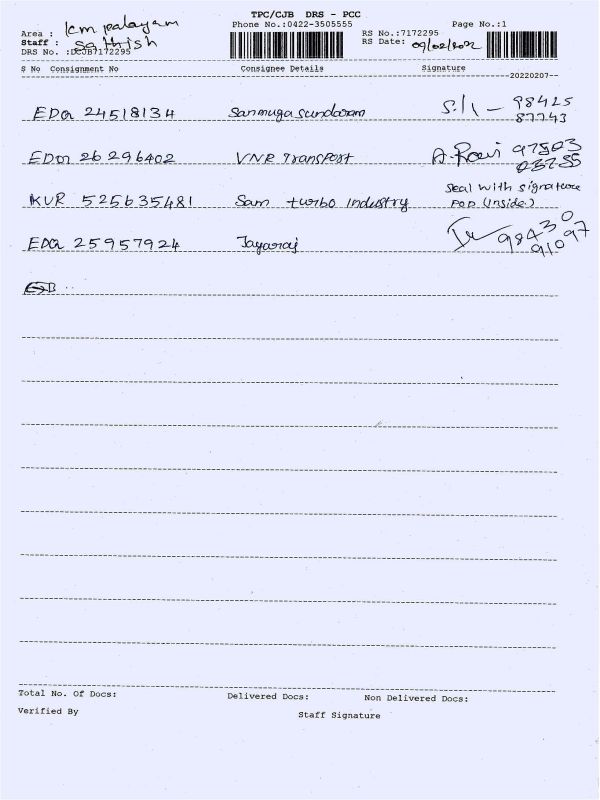 TPC/CJB DRS - PCC
Area : Kmpalayam Phone No.:0422-3505555 Page No.:1
Staff : Sathish RS No.:7172295
DRS No. :DCJB7172295 RS Date: 09/02/2022
S No Consignment No Consignee Details Signature
20220207
EDA 24518134 Sanmugasundaram 98425
87743
EDA 26296402 VNR Transport A.Ravi 97503
03755
KUR 525635481 Sam turbo Industry Seal with signature
POD (Inside.)
EDA 25957924 Jayaraj 98430
91097
Total No. Of Docs: Delivered Docs: Non Delivered Docs:
Verified By Staff Signature